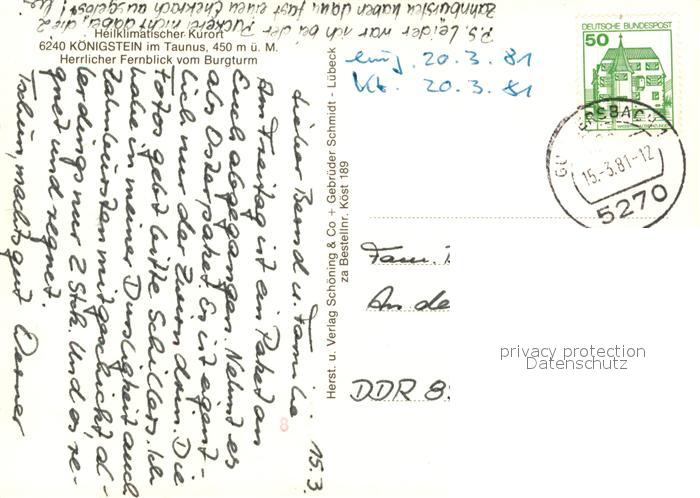 P.S. Leider war ich bei der Puckerei nicht dabei, die 2
Zahnbürsten haben dann fast einen Ehekrach ausgelöst!
Heilklimatischer Kurort
6240 KÖNIGSTEIN im Taunus, 450 m ü. M.
Herrlicher Fernblick vom Burgturm
15.3.
Lieber Bernd u. Familie
Am Freitag ist ein Paket an
Euch abgegangen. Nehmt es
als Osterpaket. Es ist eigent-
lich nur der Zwirn drin. Die
Fotos gebt bitte Schillers. Ich
habe in meiner Dusligkeit auch
Zahnbürsten mitgeschickt, al-
lerdings nur 2 Stck. Und es re-
gnet und regnet.
Tschüs, machts gut Werner
Herst. u. Verlag Schöning & Co + Gebrüder Schmidt · Lübeck
za Bestellnr. Köst 189
eing. 20.3.81
Kt. 20.3.81
DEUTSCHE BUNDESPOST
50
15.-3.81-12
5270
Fam.
An de
DDR 8
8
privacy protection
Datenschutz